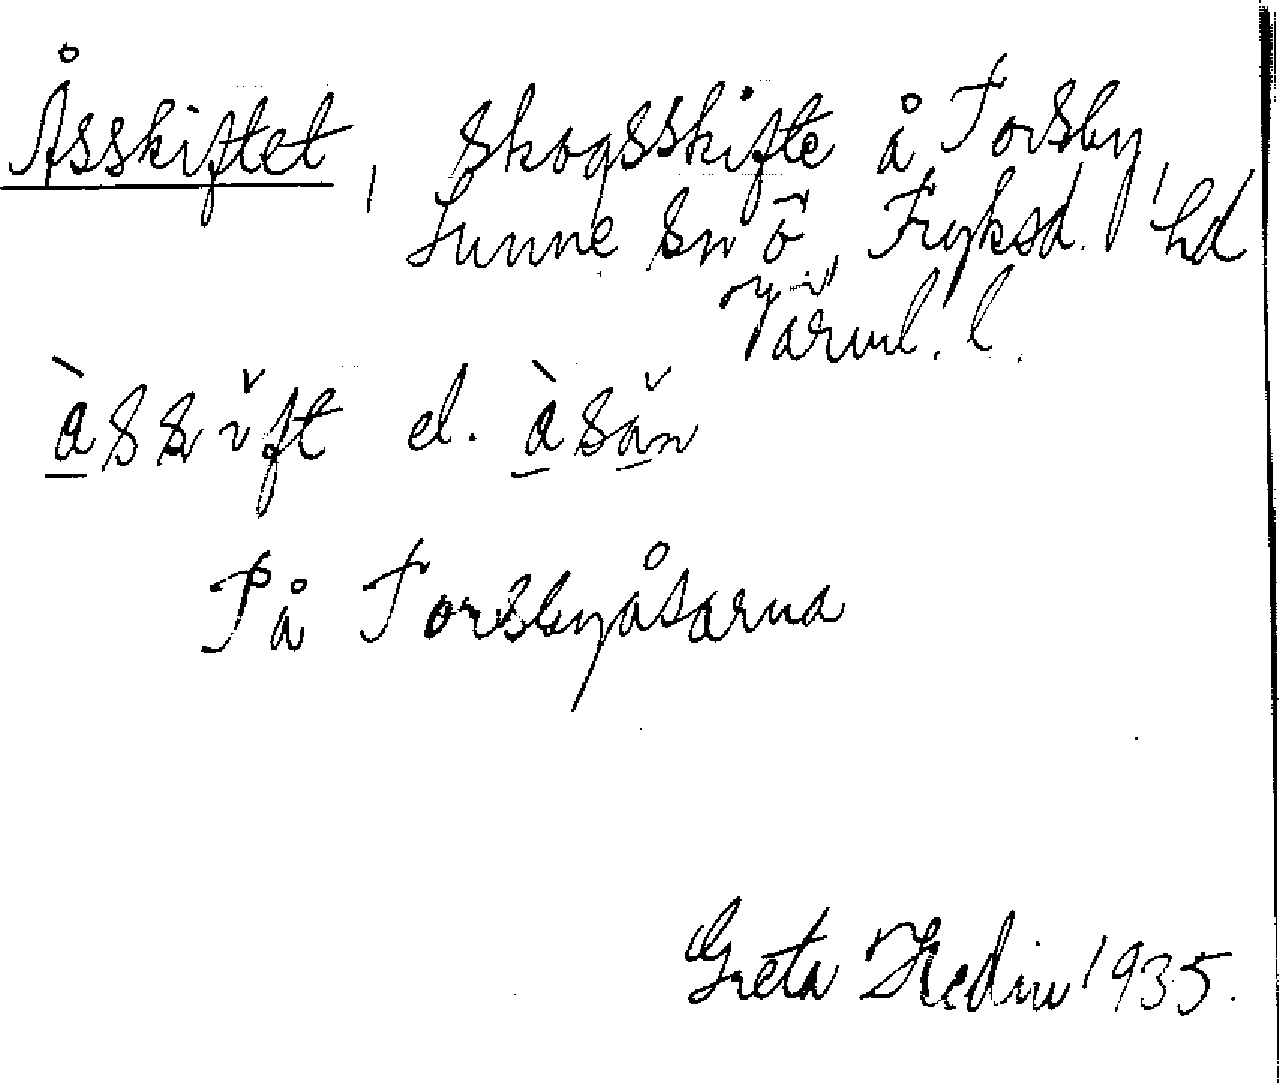 Åsskiftet, skogsskifte å Torsby,
Sunne sn ö, Fryksd. hd
Värml. l.
el.
På Torsbyåsarna
Greta Hedin 1935.